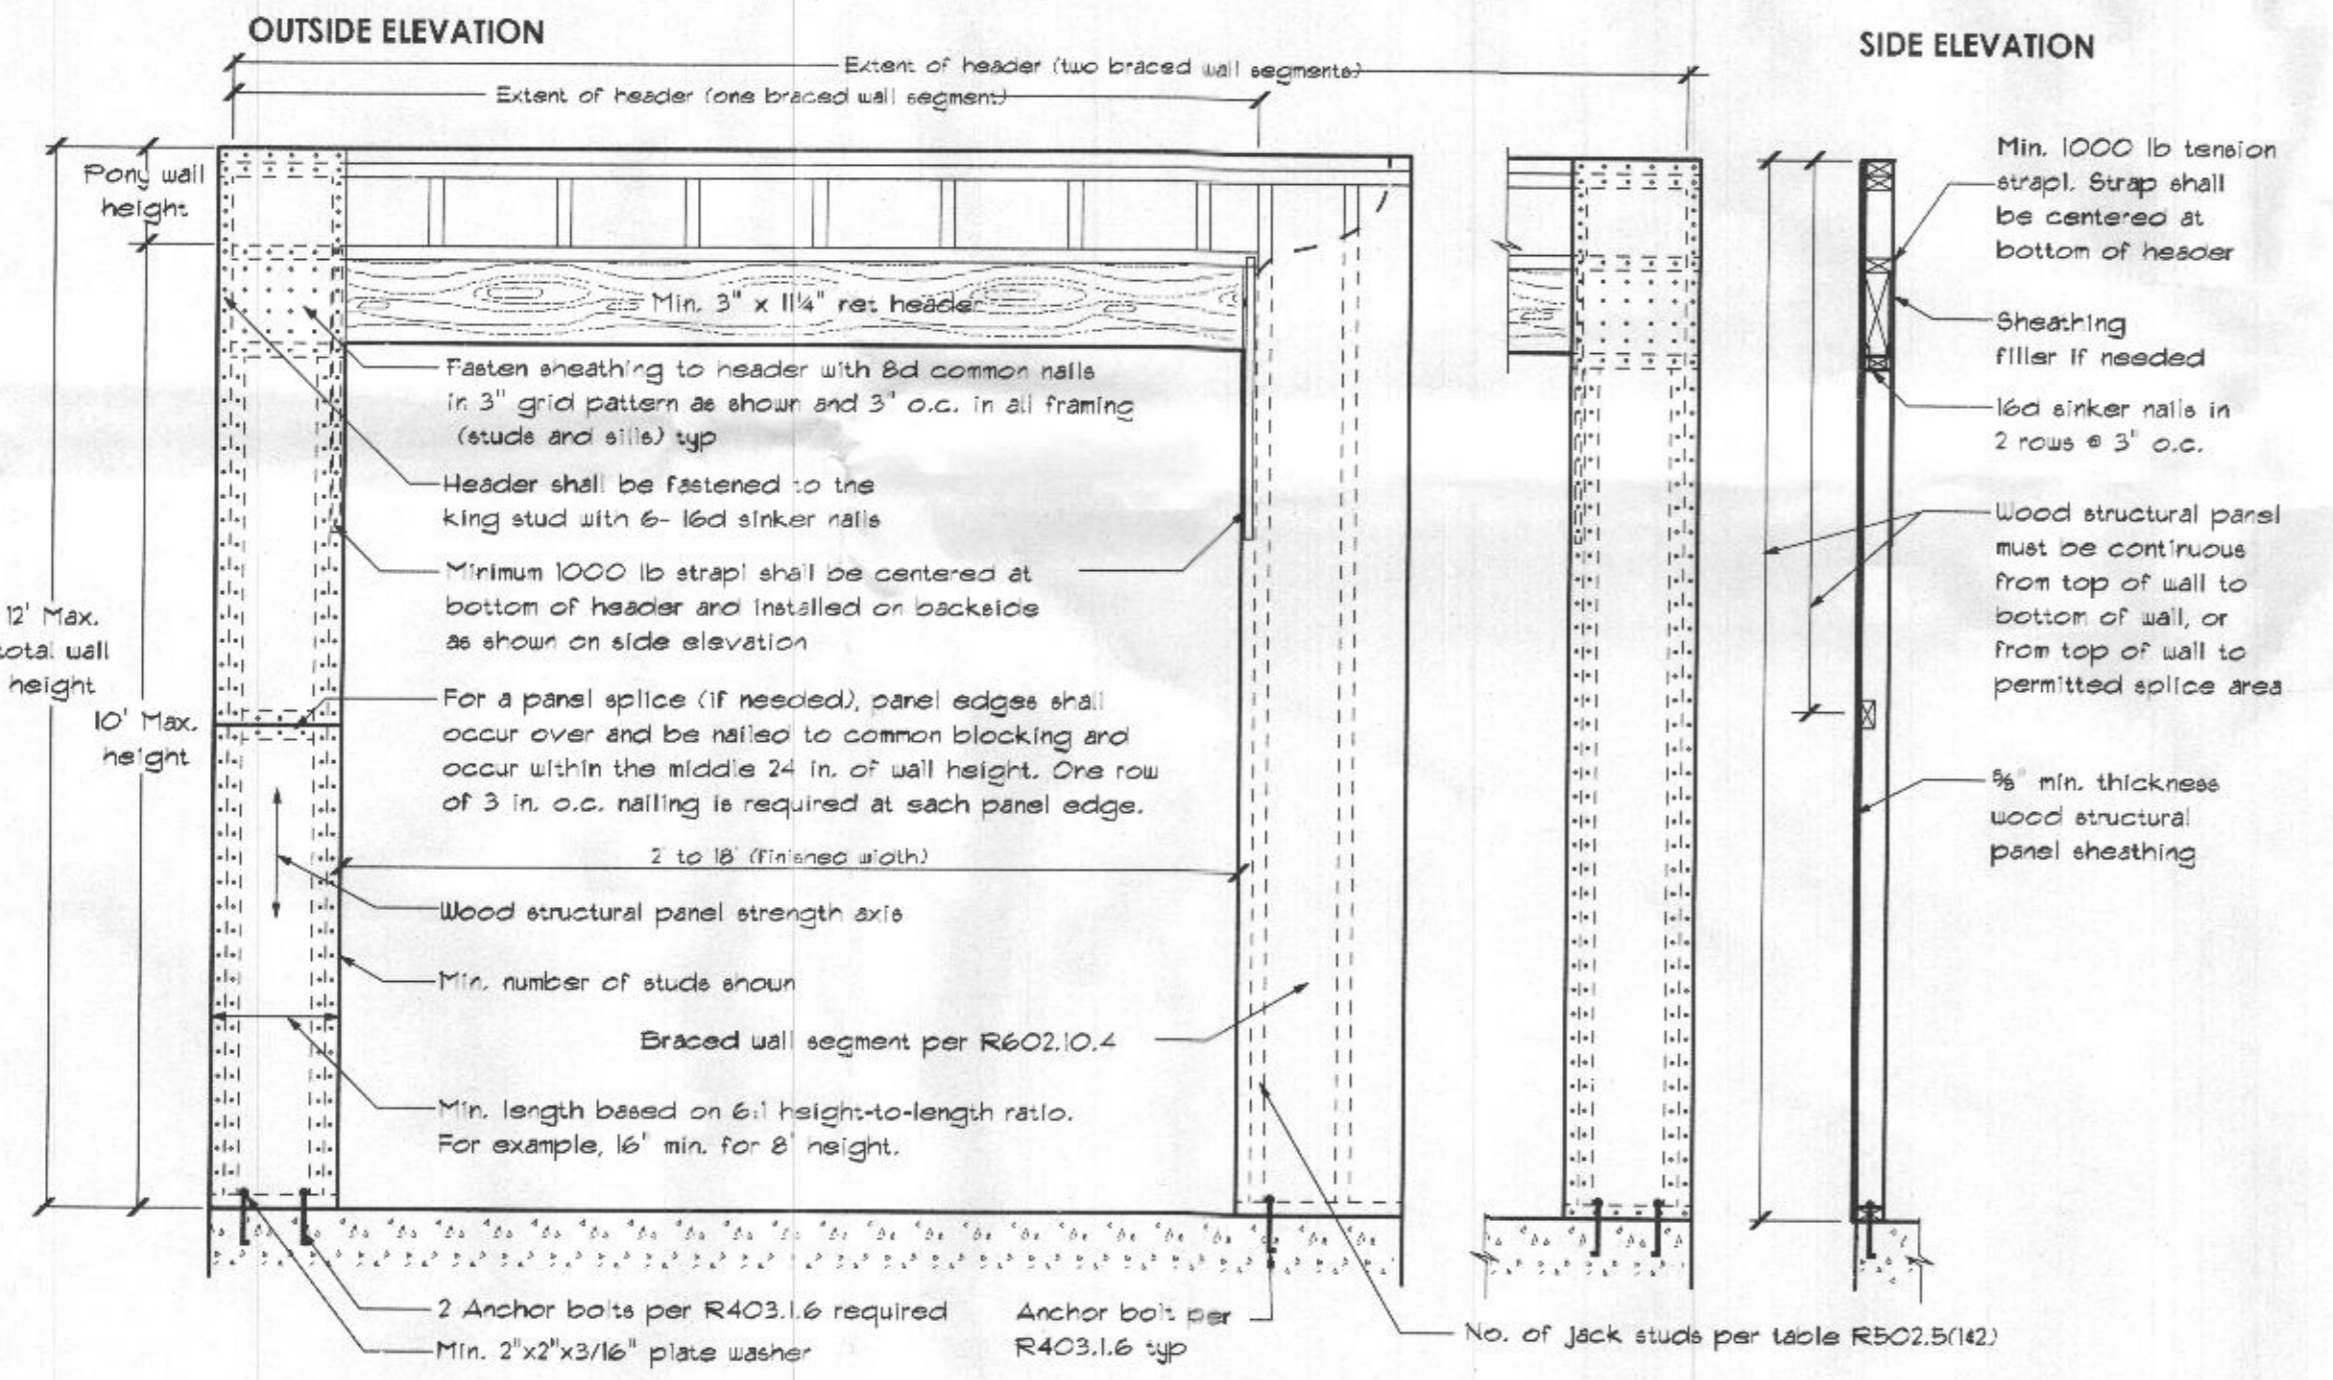 OUTSIDE ELEVATION
SIDE ELEVATION
Extent of header (two braced wall segments)
Extent of header (one braced wall segment)
Pony wall
height
12' Max.
total wall
height
10' Max.
height
Min. 3" x 11¼" net header
Fasten sheathing to header with 8d common nails
in 3" grid pattern as shown and 3" o.c. in all framing
(studs and sills) typ
Header shall be fastened to the
king stud with 6- 16d sinker nails
Minimum 1000 lb strapl shall be centered at
bottom of header and installed on backside
as shown on side elevation
For a panel splice (if needed), panel edges shall
occur over and be nailed to common blocking and
occur within the middle 24 in. of wall height. One row
of 3 in. o.c. nailing is required at each panel edge.
2' to 18' (finished width)
Wood structural panel strength axis
Min. number of studs shown
Braced wall segment per R602.10.4
Min. length based on 6:1 height-to-length ratio.
For example, 16' min. for 8' height.
2 Anchor bolts per R403.1.6 required
Min. 2"x2"x3/16" plate washer
Anchor bolt per
R403.1.6 typ
No. of jack studs per table R502.5(1&2)
Min. 1000 lb tension
strapl. Strap shall
be centered at
bottom of header
Sheathing
filler if needed
16d sinker nails in
2 rows @ 3" o.c.
Wood structural panel
must be continuous
from top of wall to
bottom of wall, or
from top of wall to
permitted splice area
min. thickness
wood structural
panel sheathing